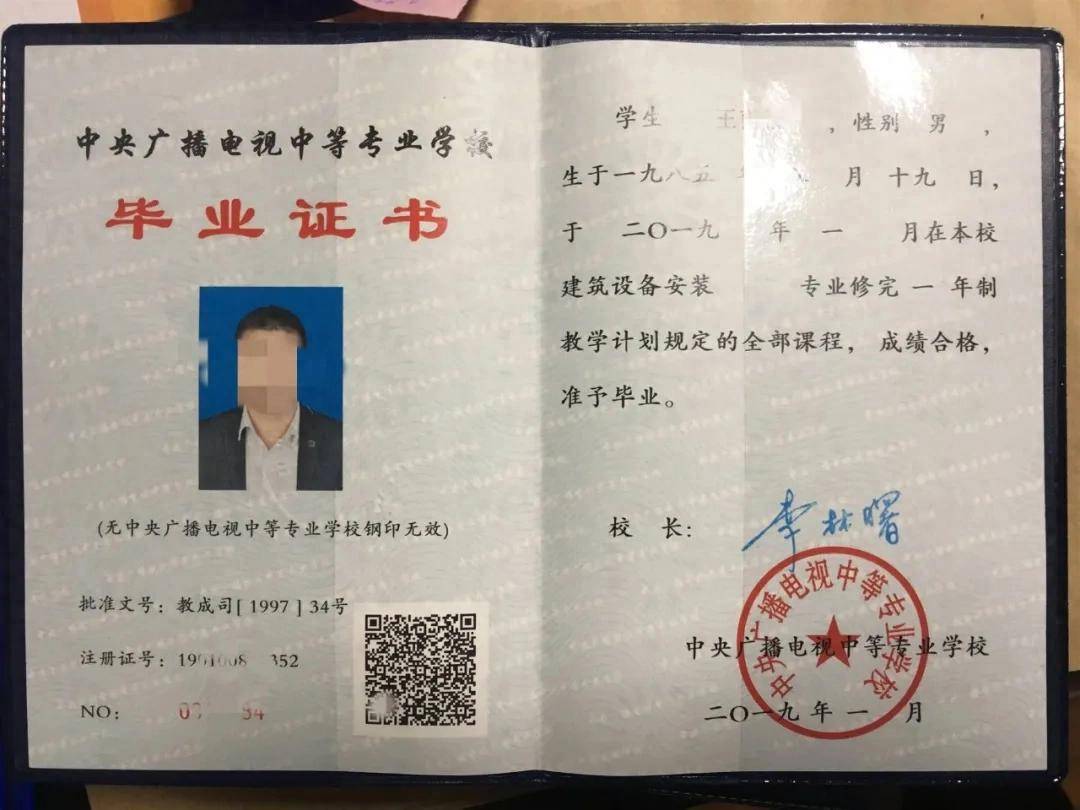 中央广播电视中等专业学校
毕业证书
(无中央广播电视中等专业学校钢印无效)
批准文号：教成司[1997]34号
注册证号：1901008 352
NO： 84
学生 王 ，性别 男 ，
生于一九八五 月 十九 日，
于 二〇一九 年 一 月在本校
建筑设备安装 专业修完 一 年制
教学计划规定的全部课程，成绩合格，
准予毕业。
校 长：李林曙
中央广播电视中等专业学校
中央广播电视中等专业学校
二〇一九 年 一 月